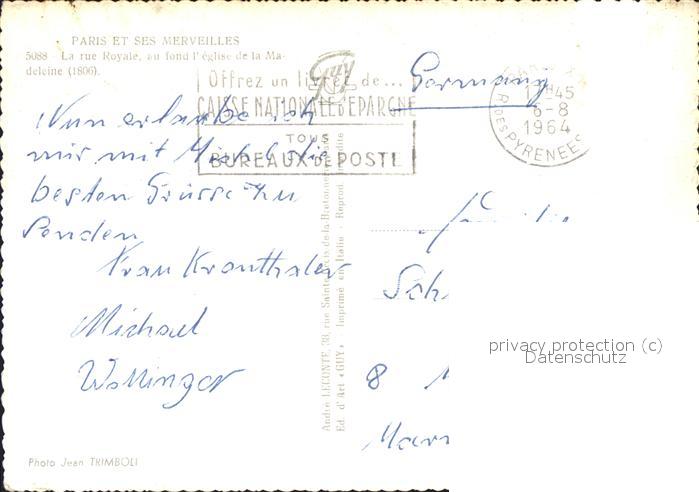 PARIS ET SES MERVEILLES
5088 - La rue Royale, au fond l'église de la Ma-
deleine (1806).
Guy
Offrez un livret de...
CAISSE NATIONALE D'ÉPARGNE
TOUS
BUREAUX DE POSTE
Germany
17H45
6-8
1964
R. DES PYRENEES
Nun erlaube ich
mir mit Michl die
besten Grüsse zu
senden
Frau Kronthaler
Michael
Wollinger
André LECONTE, 38, rue Sainte-Croix de la Bretonnerie
Ed. d'Art «GUY» Imprimé en Italie - Reprod. interdite
Familie
Sch
8
privacy protection (c)
Datenschutz
Photo Jean TRIMBOLI